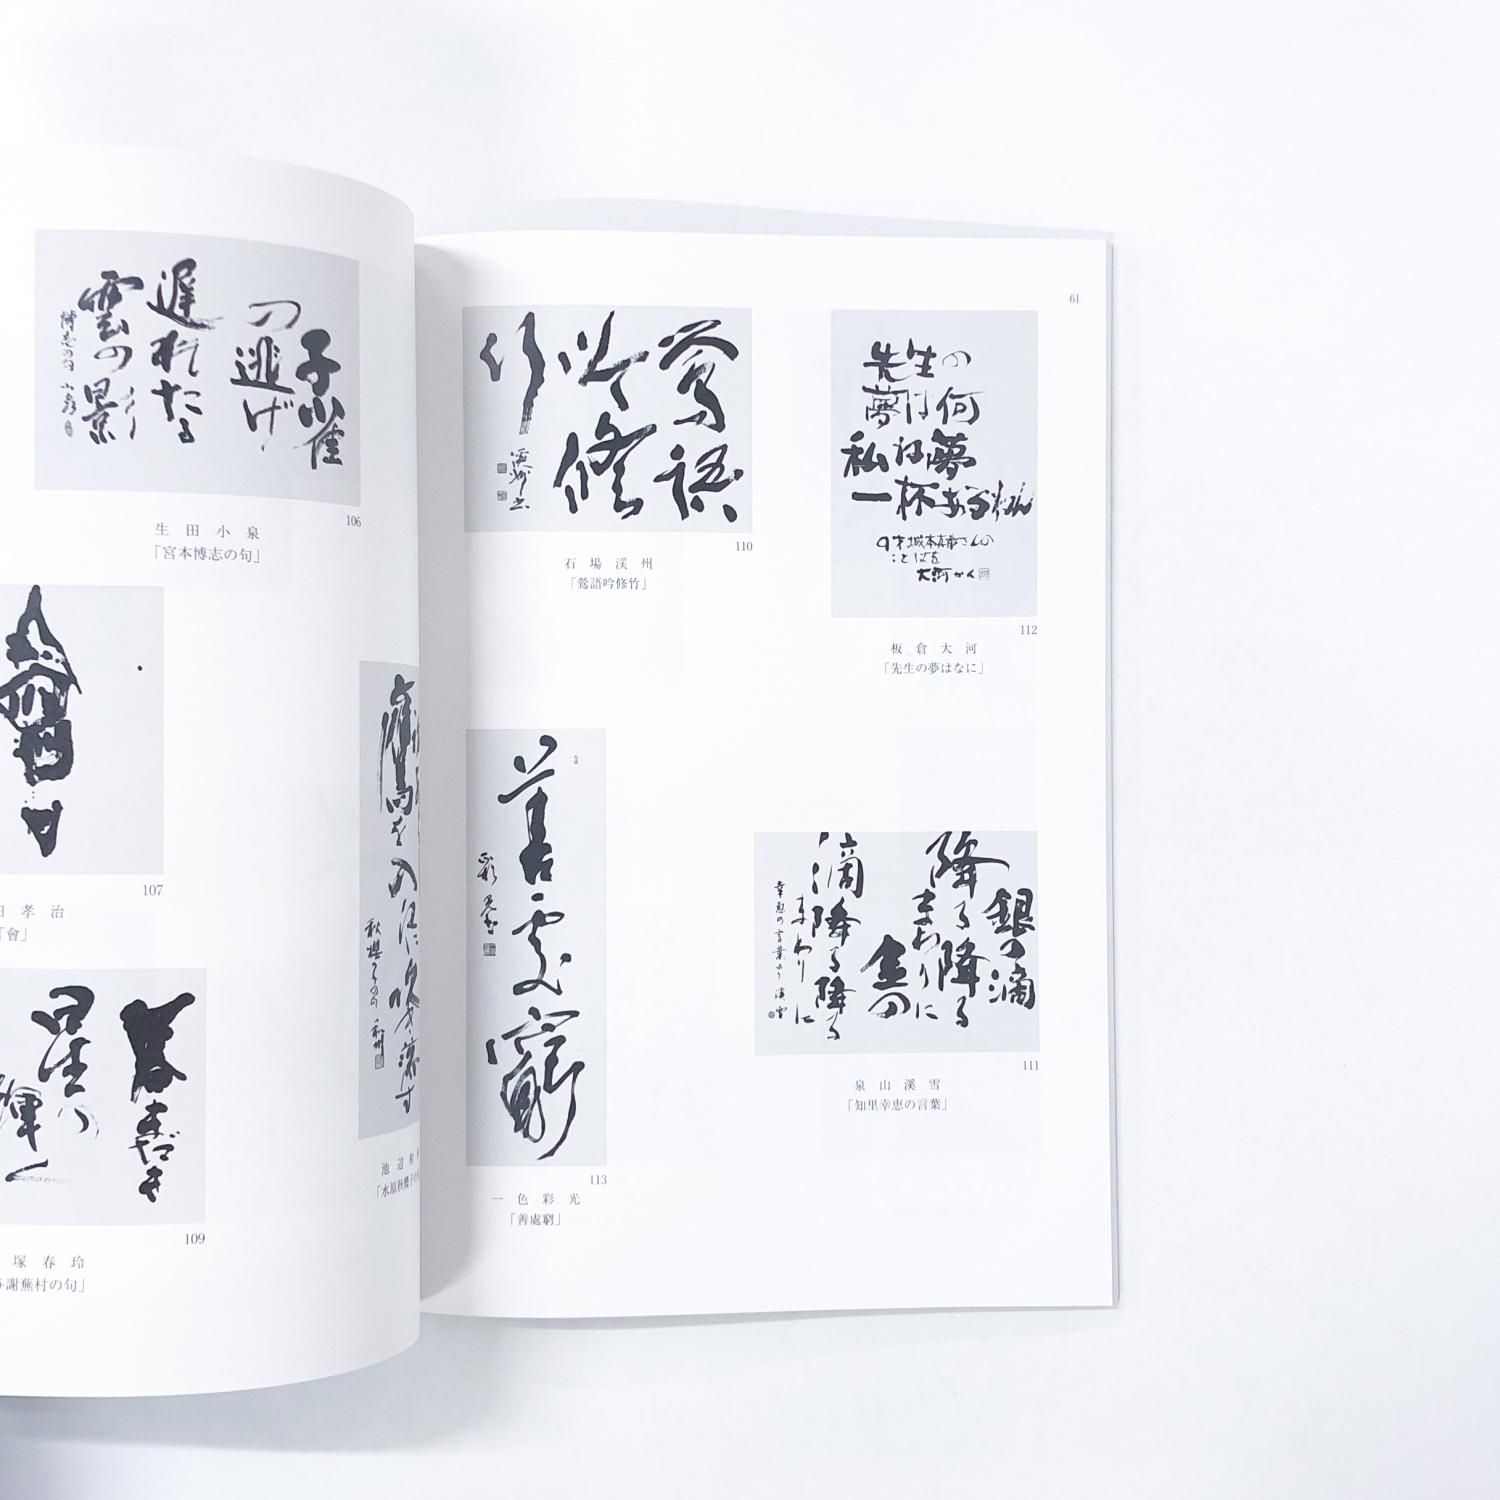 子雀
の逃げ
遅れたる
雲の影
博志の句 小泉
106
生田小泉
「宮本博志の句」
107
田孝治
「會」
鷹を
入江に
吹き落す
秋櫻子の句
暮まだき
星の
輝く
109
塚春玲
与謝蕪村の句」
池辺和
「水原秋櫻子の
61
鶯語
吟修
竹
溪州書
110
石場渓州
「鶯語吟修竹」
先生の
夢は何
私は夢
一杯あるもん
9才城本真希さんの
ことばを
大河かく
112
板倉大河
「先生の夢はなに」
善處窮
113
一色彩光
「善處窮」
銀の滴
降る降る
まわりに
金の
滴降る降る
まわりに
幸恵の言葉より 溪雪
111
泉山溪雪
「知里幸恵の言葉」